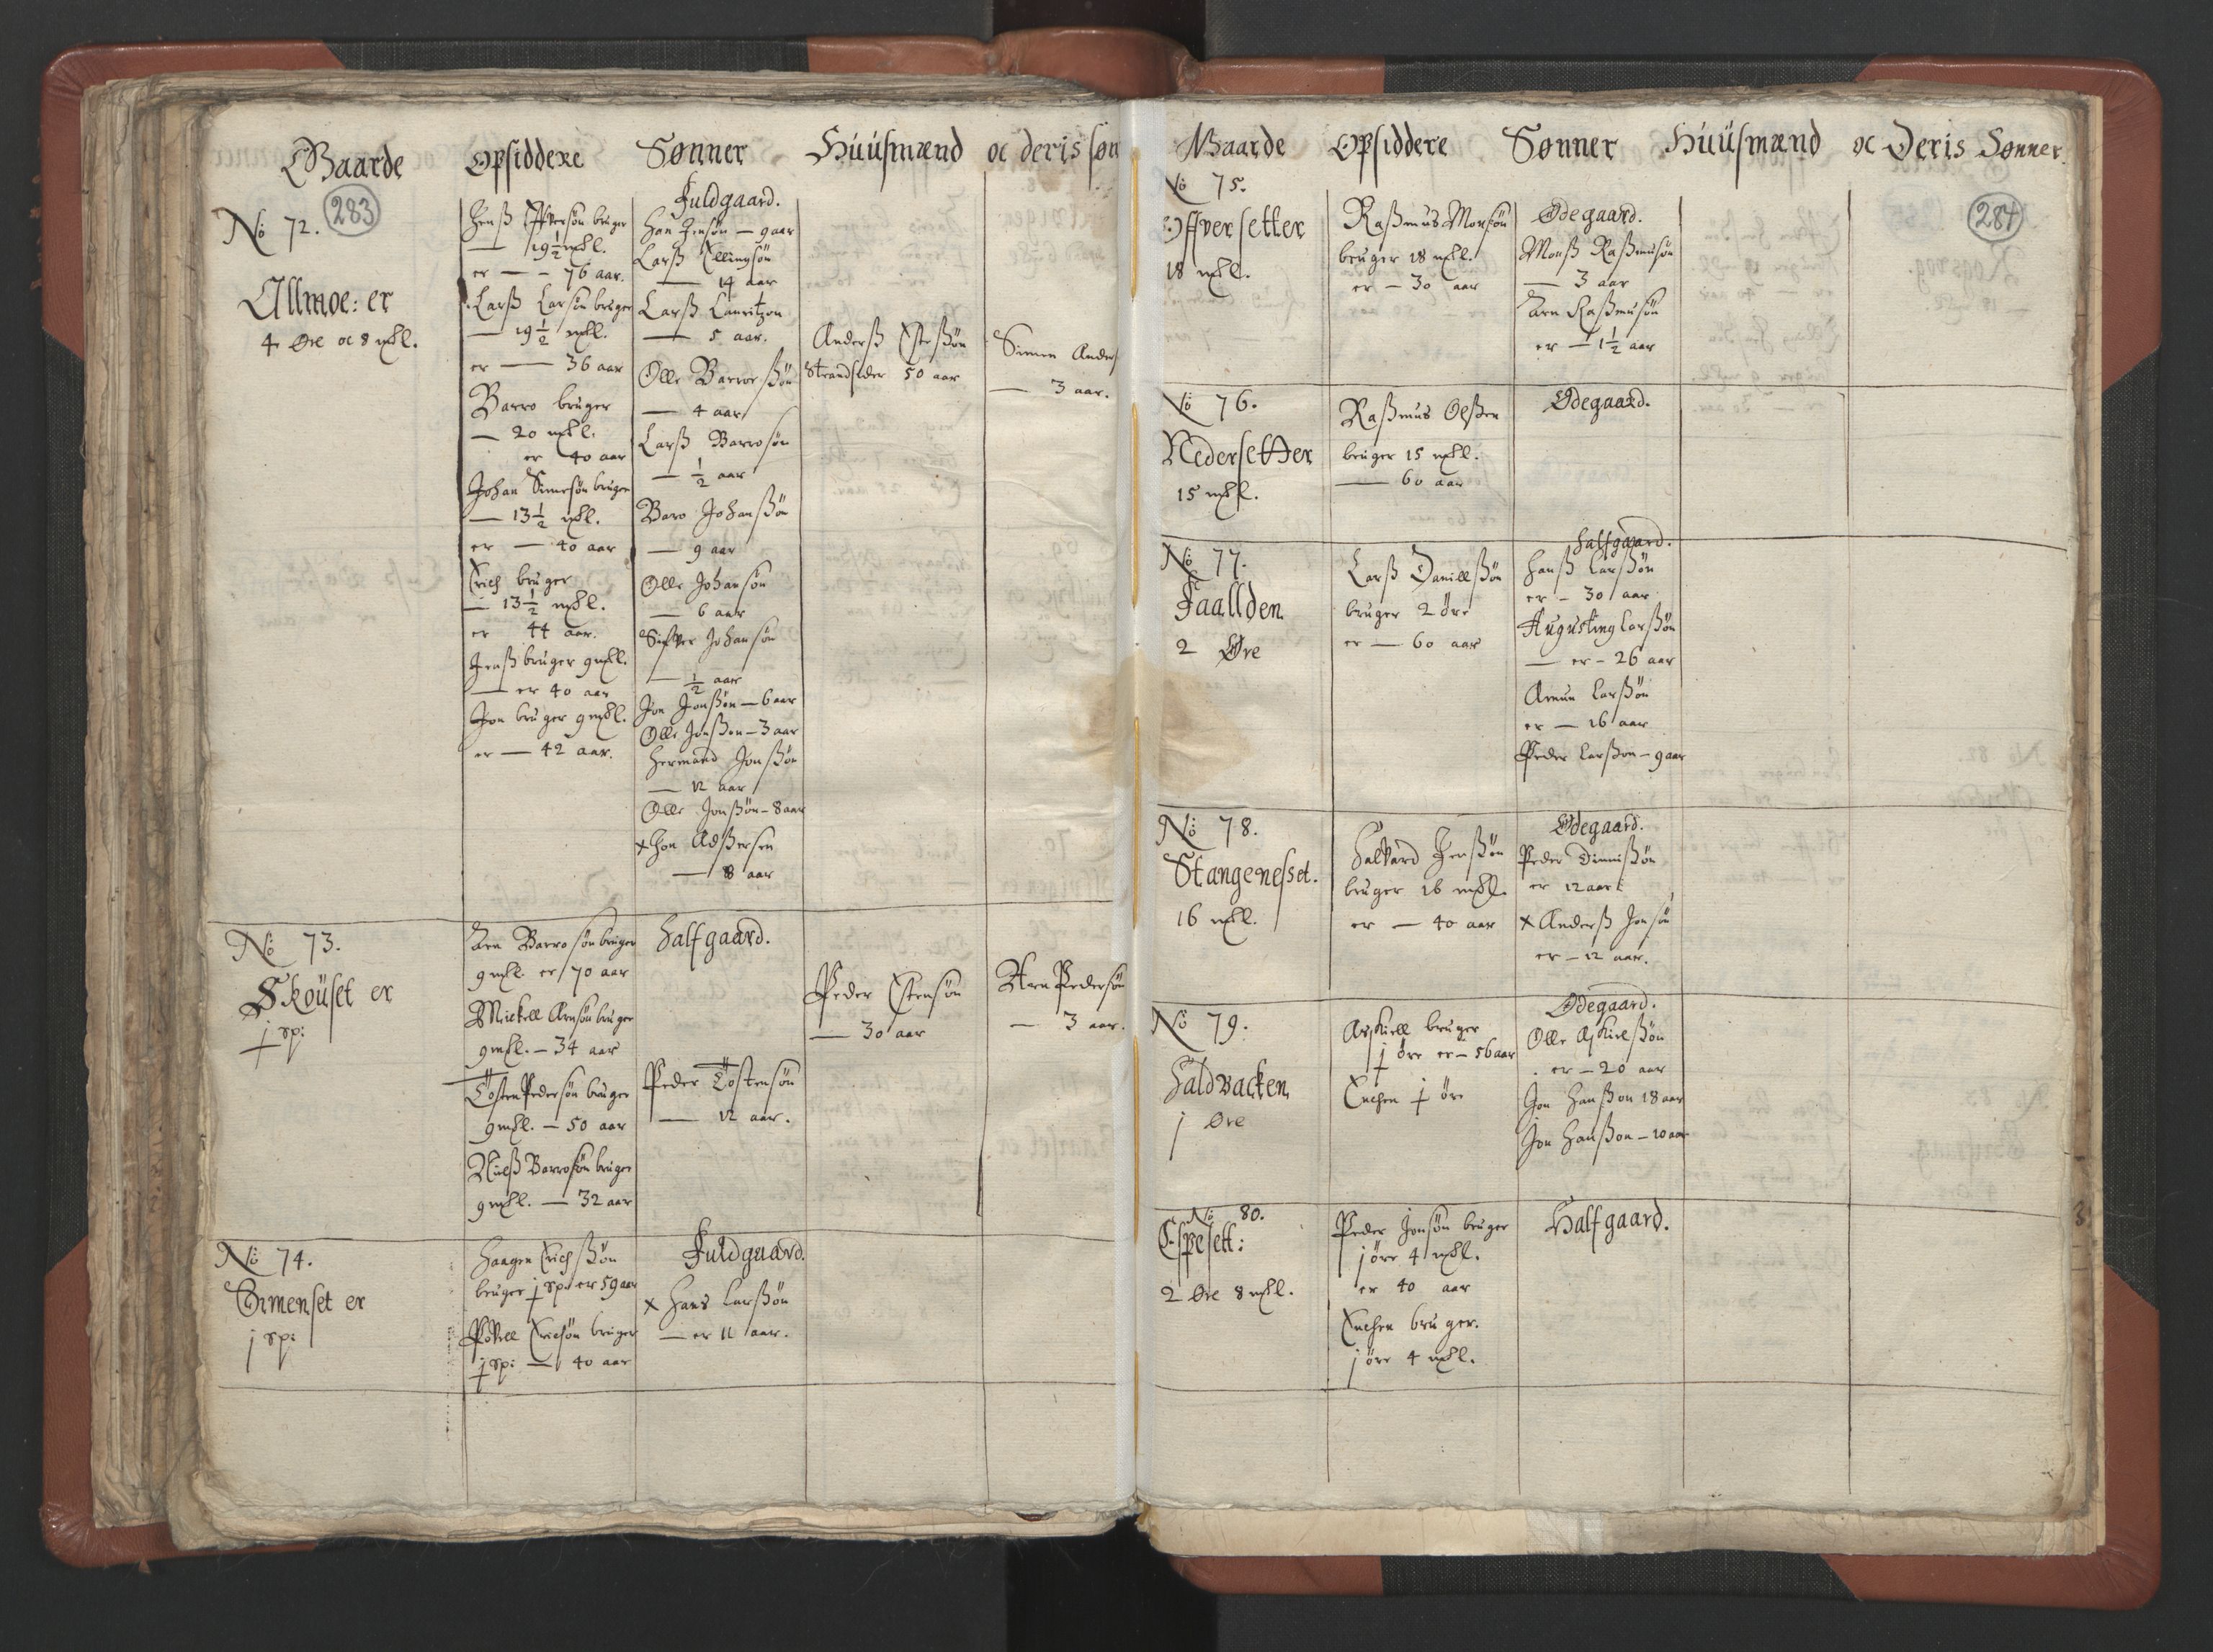 Gaarde Opsiddere Sønner Huusmænd oc deris søn
283
No 72.
Allmoe: er
4 Øre oc 8 mkl.
Jenß Iffversøn bruger
— 19½ mkl.
er — – 76 aar.
Larß Larsøn bruger
— 19½ mkl.
er — 36 aar
Barro bruger
— 20 mkl.
er 40 aar
Johan Simesøn bruger
— 13½ mkl.
er — 40 aar
Erich bruger
— 13½ mkl.
er 44 aar.
Jenß bruger 9 mkl.
— er 40 aar
Jon bruger 9 mkl.
er — 42 aar.
Fuldgaard.
Jensøn — 9 aar
Larß Ellingsøn
— 14 aar
Larß Lauritzøn
— 5 aar.
Olle Barroeßøn
— 4 aar
Larß Barrosøn
— ½ aar
Baro Johanßøn
— 9 aar
Olle Johansøn
— 6 aar
Siffver Johansøn
— ½ aar
Jon Jonßøn — 6 aar
Olle Jonßøn — 3 aar
Hermand Jonßøn
— 12 aar
Olle Jonßøn – 8 aar
— 8 aar
Anderß Osteßøn
Strandsider 50 aar
Simen Anders
— 3 aar.
No 73.
Skouset er
j sp:
Arn Barrosøn bruger
9 mkl. er 70 aar
Mickell Arnsøn bruger
9 mkl. – 34 aar
Tosten Pedersøn bruger
9 mkl. – 50 aar
Nielß Barrosøn bruger
9 mkl. — 32 aar
Halfgaard.
Peder Tostensøn
— 12 aar.
Peder Ostensøn
— 30 aar
Arn Pedersøn
— 3 aar.
No 74.
Simenset er
j sp:
Haagen Erichßøn
bruger j sp: er 59 aar
Povell Ericsøn bruger
j sp: — 40 aar
Fuldgaard.
x Hans Larßøn
— er 11 aar.
Gaarde Opsiddere Sønner Huusmænd oc Deris Sønner
284
No 75.
Offversetter
18 mkl.
Raßmus Monsøn
bruger 18 mkl.
er — 30 aar
Ødegaard.
Monß Raßmusøn
— 3 aar
Arn Raßmusøn
er — 1½ aar
No 76.
Nedersetter
15 mkl.
Raßmus Olßen
bruger 15 mkl.
— 60 aar
Ødegaard.
No 77.
Faallden
2 Øre
Larß Daniellßøn
bruger 2 øre
er — 60 aar
Halfgaard.
Hanß Larßøn
er – 30 aar
Augusting Larßøn
— er – 26 aar
Amun Larßøn
er — 16 aar
Peder Larßøn – 9 aar
No 78.
Stangenesset.
16 mkl.
Halvard Jenßøn
bruger 16 mkl.
er — 40 aar
Ødegaard.
Peder
er 12 aar
x Anderß Jonsøn
er – 12 aar.
No 79.
Haldbacken
j Øre
Askiell bruger
j øre er – 56 aar
Enchen j øre
Ødegaard.
Olle Askielßøn
er – 20 aar
Jon Hanßøn 18 aar
Jon Hanßøn – 10 aar
No 80.
Espesett:
2 Øre 8 mkl.
Peder Jonsøn bruger
j øre 4 mkl.
er 40 aar
Enchen bruger.
j øre 4 mkl.
Halfgaard.